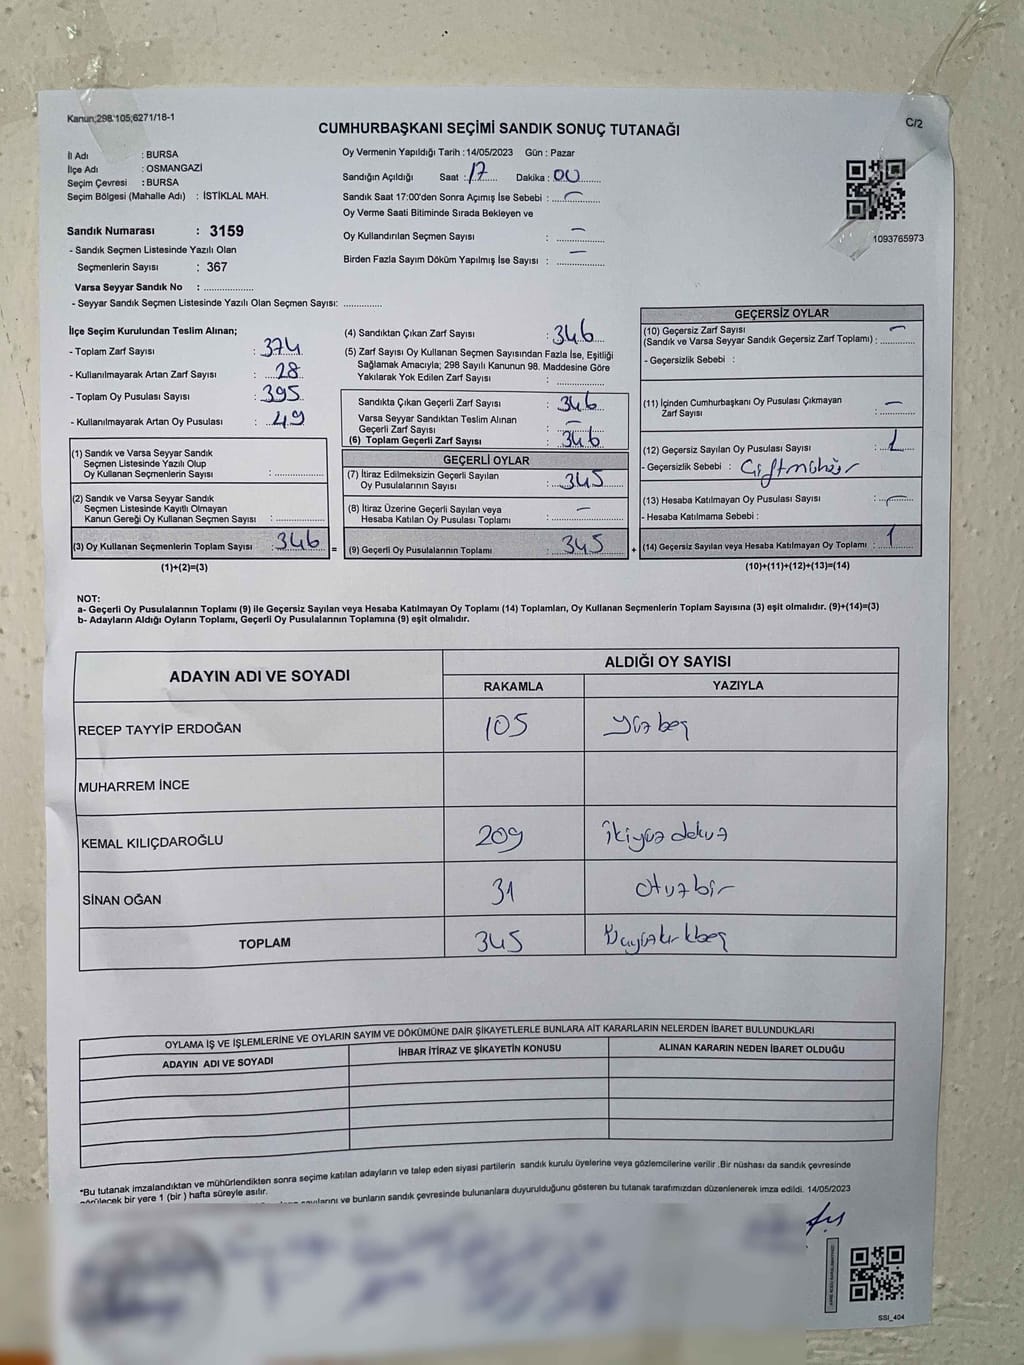 Kanun;298.105;6271/18-1
CUMHURBAŞKANI SEÇİMİ SANDIK SONUÇ TUTANAĞI
C/2
İl Adı : BURSA
İlçe Adı : OSMANGAZİ
Seçim Çevresi : BURSA
Seçim Bölgesi (Mahalle Adı) : İSTİKLAL MAH.
Oy Vermenin Yapıldığı Tarih :14/05/2023 Gün : Pazar
Sandığın Açıldığı Saat : 17 Dakika : 00
Sandık Saat 17:00'den Sonra Açımış İse Sebebi : –
Oy Verme Saati Bitiminde Sırada Bekleyen ve
Oy Kullandırılan Seçmen Sayısı : –
Birden Fazla Sayım Döküm Yapılmış İse Sayısı : –
1093765973
Sandık Numarası : 3159
- Sandık Seçmen Listesinde Yazılı Olan
Seçmenlerin Sayısı : 367
Varsa Seyyar Sandık No : ................
- Seyyar Sandık Seçmen Listesinde Yazılı Olan Seçmen Sayısı: .............
İlçe Seçim Kurulundan Teslim Alınan;
- Toplam Zarf Sayısı : 374
- Kullanılmayarak Artan Zarf Sayısı : 28
- Toplam Oy Pusulası Sayısı : 395
- Kullanılmayarak Artan Oy Pusulası : 49
(1) Sandık ve Varsa Seyyar Sandık
Seçmen Listesinde Yazılı Olup
Oy Kullanan Seçmenlerin Sayısı : ................
(2) Sandık ve Varsa Seyyar Sandık
Seçmen Listesinde Kayıtlı Olmayan
Kanun Gereği Oy Kullanan Seçmen Sayısı : ................
(3) Oy Kullanan Seçmenlerin Toplam Sayısı : 346 =
(1)+(2)=(3)
(4) Sandıktan Çıkan Zarf Sayısı : 346
(5) Zarf Sayısı Oy Kullanan Seçmen Sayısından Fazla İse, Eşitliği
Sağlamak Amacıyla; 298 Sayılı Kanunun 98. Maddesine Göre
Yakılarak Yok Edilen Zarf Sayısı : ................
Sandıkta Çıkan Geçerli Zarf Sayısı : 346
Varsa Seyyar Sandıktan Teslim Alınan
Geçerli Zarf Sayısı : –
(6) Toplam Geçerli Zarf Sayısı : 346
GEÇERLİ OYLAR
(7) İtiraz Edilmeksizin Geçerli Sayılan
Oy Pusulalarının Sayısı : 345
(8) İtiraz Üzerine Geçerli Sayılan veya
Hesaba Katılan Oy Pusulası Toplamı : –
(9) Geçerli Oy Pusulalarının Toplamı : 345 +
GEÇERSİZ OYLAR
(10) Geçersiz Zarf Sayısı
(Sandık ve Varsa Seyyar Sandık Geçersiz Zarf Toplamı) : –
- Geçersizlik Sebebi :
(11) İçinden Cumhurbaşkanı Oy Pusulası Çıkmayan
Zarf Sayısı : –
(12) Geçersiz Sayılan Oy Pusulası Sayısı : 1
- Geçersizlik Sebebi : Çift mühür
(13) Hesaba Katılmayan Oy Pusulası Sayısı : –
- Hesaba Katılmama Sebebi :
(14) Geçersiz Sayılan veya Hesaba Katılmayan Oy Toplamı : 1
(10)+(11)+(12)+(13)=(14)
NOT:
a- Geçerli Oy Pusulalarının Toplamı (9) ile Geçersiz Sayılan veya Hesaba Katılmayan Oy Toplamı (14) Toplamları, Oy Kullanan Seçmenlerin Toplam Sayısına (3) eşit olmalıdır. (9)+(14)=(3)
b- Adayların Aldığı Oyların Toplamı, Geçerli Oy Pusulalarının Toplamına (9) eşit olmalıdır.
ADAYIN ADI VE SOYADI ALDIĞI OY SAYISI
RAKAMLA YAZIYLA
RECEP TAYYİP ERDOĞAN 105 yüzbeş
MUHARREM İNCE
KEMAL KILIÇDAROĞLU 209 ikiyüz dokuz
SİNAN OĞAN 31 otuzbir
TOPLAM 345 üçyüzkırkbeş
OYLAMA İŞ VE İŞLEMLERİNE VE OYLARIN SAYIM VE DÖKÜMÜNE DAİR ŞİKAYETLERLE BUNLARA AİT KARARLARIN NELERDEN İBARET BULUNDUKLARI
ADAYIN ADI VE SOYADI İHBAR İTİRAZ VE ŞİKAYETİN KONUSU ALINAN KARARIN NEDEN İBARET OLDUĞU
*Bu tutanak imzalandıktan ve mühürlendikten sonra seçime katılan adayların ve talep eden siyasi partilerin sandık kurulu üyelerine veya gözlemcilerine verilir .Bir nüshası da sandık çevresinde
görülecek bir yere 1 (bir ) hafta süreyle asılır.
ve bunların sandık çevresinde bulunanlara duyurulduğunu gösteren bu tutanak tarafımızdan düzenlenerek imza edildi. 14/05/2023
SSI_404